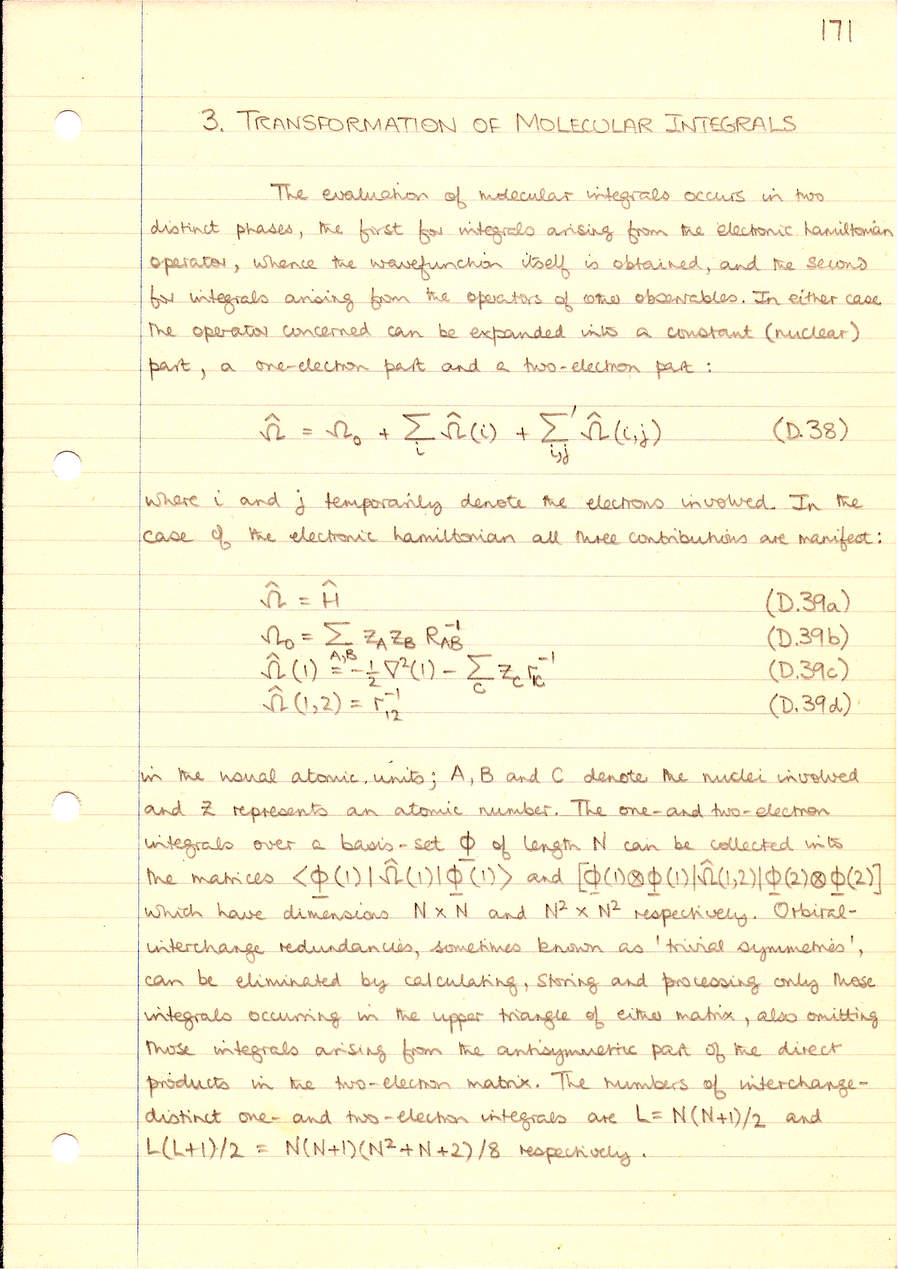 171
3. TRANSFORMATION OF MOLECULAR INTEGRALS
The evaluation of molecular integrals occurs in two
distinct phases, the first for integrals arising from the electronic hamiltonian
operator, whence the wavefunction itself is obtained, and the second
for integrals arising from the operators of other observables. In either case
the operator concerned can be expanded into a constant (nuclear)
part, a one-electron part and a two-electron part :
Ω̂ = Ω₀ + ∑ᵢ Ω̂(i) + ∑′ᵢ,ⱼ Ω̂(i,j) (D.38)
where i and j temporarily denote the electrons involved. In the
case of the electronic hamiltonian all three contributions are manifest :
Ω̂ = Ĥ (D.39a)
Ω₀ = ∑_{A,B} Z_A Z_B R_{AB}^{-1} (D.39b)
Ω̂(1) = -½∇²(1) - ∑_C Z_C r_{1C}^{-1} (D.39c)
Ω̂(1,2) = r_{12}^{-1} (D.39d)
in the usual atomic units ; A, B and C denote the nuclei involved
and Z represents an atomic number. The one- and two-electron
integrals over a basis-set ϕ of length N can be collected into
the matrices <ϕ(1)|Ω̂(1)|ϕ(1)> and [ϕ(1)⊗ϕ(1)|Ω̂(1,2)|ϕ(2)⊗ϕ(2)]
which have dimensions N × N and N² × N² respectively. Orbital-
interchange redundancies, sometimes known as 'trivial symmetries',
can be eliminated by calculating, storing and processing only those
integrals occurring in the upper triangle of either matrix, also omitting
those integrals arising from the antisymmetric part of the direct
products in the two-electron matrix. The numbers of interchange-
distinct one- and two-electron integrals are L = N(N+1)/2 and
L(L+1)/2 = N(N+1)(N²+N+2)/8 respectively.